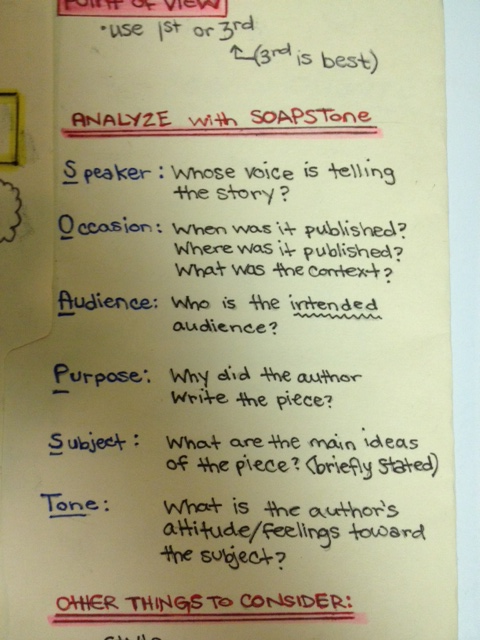 Point of View
•use 1st or 3rd
(3rd is best)
ANALYZE with SOAPSTone
Speaker: Whose voice is telling
the story?
Occasion: When was it published?
Where was it published?
What was the context?
Audience: Who is the intended
audience?
Purpose: Why did the author
write the piece?
Subject: What are the main ideas
of the piece? (briefly stated)
Tone: What is the author's
attitude/feelings toward
the subject?
OTHER THINGS TO CONSIDER: